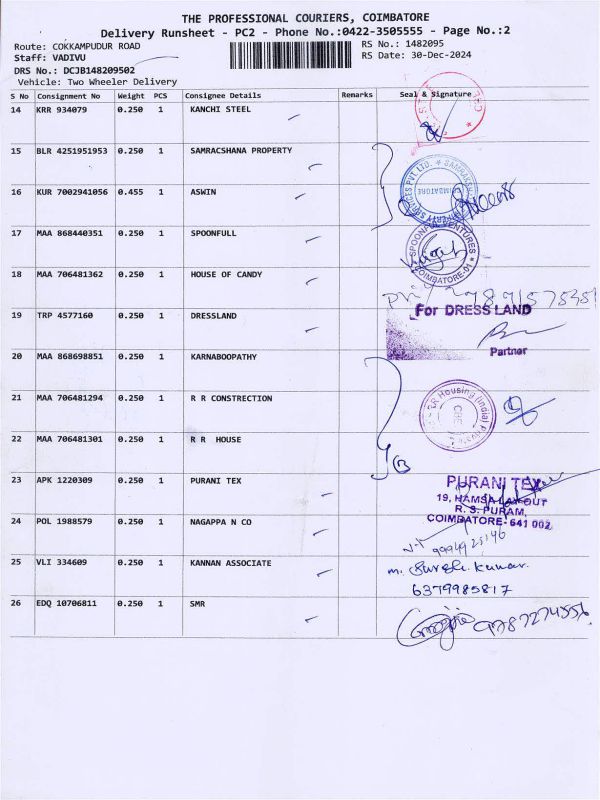 THE PROFESSIONAL COURIERS, COIMBATORE
Delivery Runsheet - PC2 - Phone No.:0422-3505555 - Page No.:2
Route: COKKAMPUDUR ROAD
RS No.: 1482095
Staff: VADIVU
RS Date: 30-Dec-2024
DRS No.: DCJB148209502
Vehicle: Two Wheeler Delivery
S No Consignment No Weight PCS Consignee Details Remarks Seal & Signature
14 KRR 934079 0.250 1 KANCHI STEEL
15 BLR 4251951953 0.250 1 SAMRACSHANA PROPERTY
COIMBATORE
16 KUR 7002941056 0.455 1 ASWIN
17 MAA 868440351 0.250 1 SPOONFULL
SPOONFUL VENTURES
COIMBATORE-01
18 MAA 706481362 0.250 1 HOUSE OF CANDY
19 TRP 4577160 0.250 1 DRESSLAND
For DRESS LAND
Partner
20 MAA 868698851 0.250 1 KARNABOOPATHY
21 MAA 706481294 0.250 1 R R CONSTRECTION
Housing (India)
22 MAA 706481301 0.250 1 R R HOUSE
23 APK 1220309 0.250 1 PURANI TEX
PURANI TEX
19, HAMSA LAYOUT
R. S. PURAM,
COIMBATORE- 641 002
24 POL 1988579 0.250 1 NAGAPPA N CO
25 VLI 334609 0.250 1 KANNAN ASSOCIATE
m. Suresh.kumar.
6379985817
26 EDQ 10706811 0.250 1 SMR